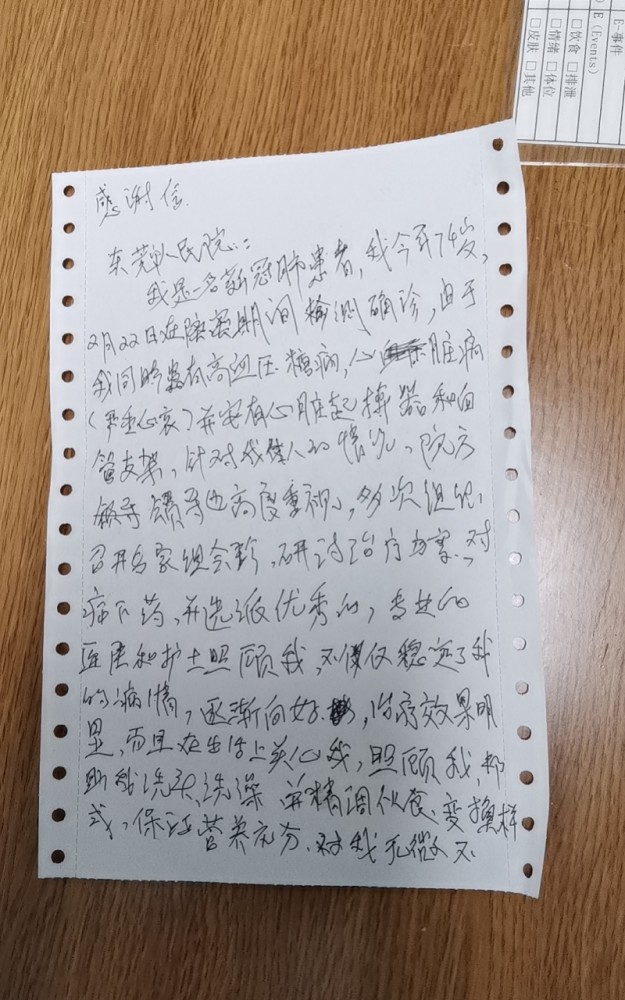 E-事件
E（Events）
□饮食 □排泄
□情绪 □体位
□皮肤 □其他
感谢信
东莞人民院：
我是一名新冠肺患者，我今年74岁，
2月22日在隔离期间检测确诊，由于
我同时患有高血压 糖病，心脏病
（严重心衰）并安有心脏起搏器和血
管支架，针对我个人的情况，院方
领导也高度重视，多次组织
召开专家组会诊，研讨治疗方案，对
病下药，并选派优秀的，专业的
医生和护士照顾我，不仅仅稳定了我
的病情，逐渐向好，治疗效果明
显，而且在生活上关心我，照顾我，帮
助我洗头、洗澡 并精调伙食、变换样
式，保证营养充分，对我无微不